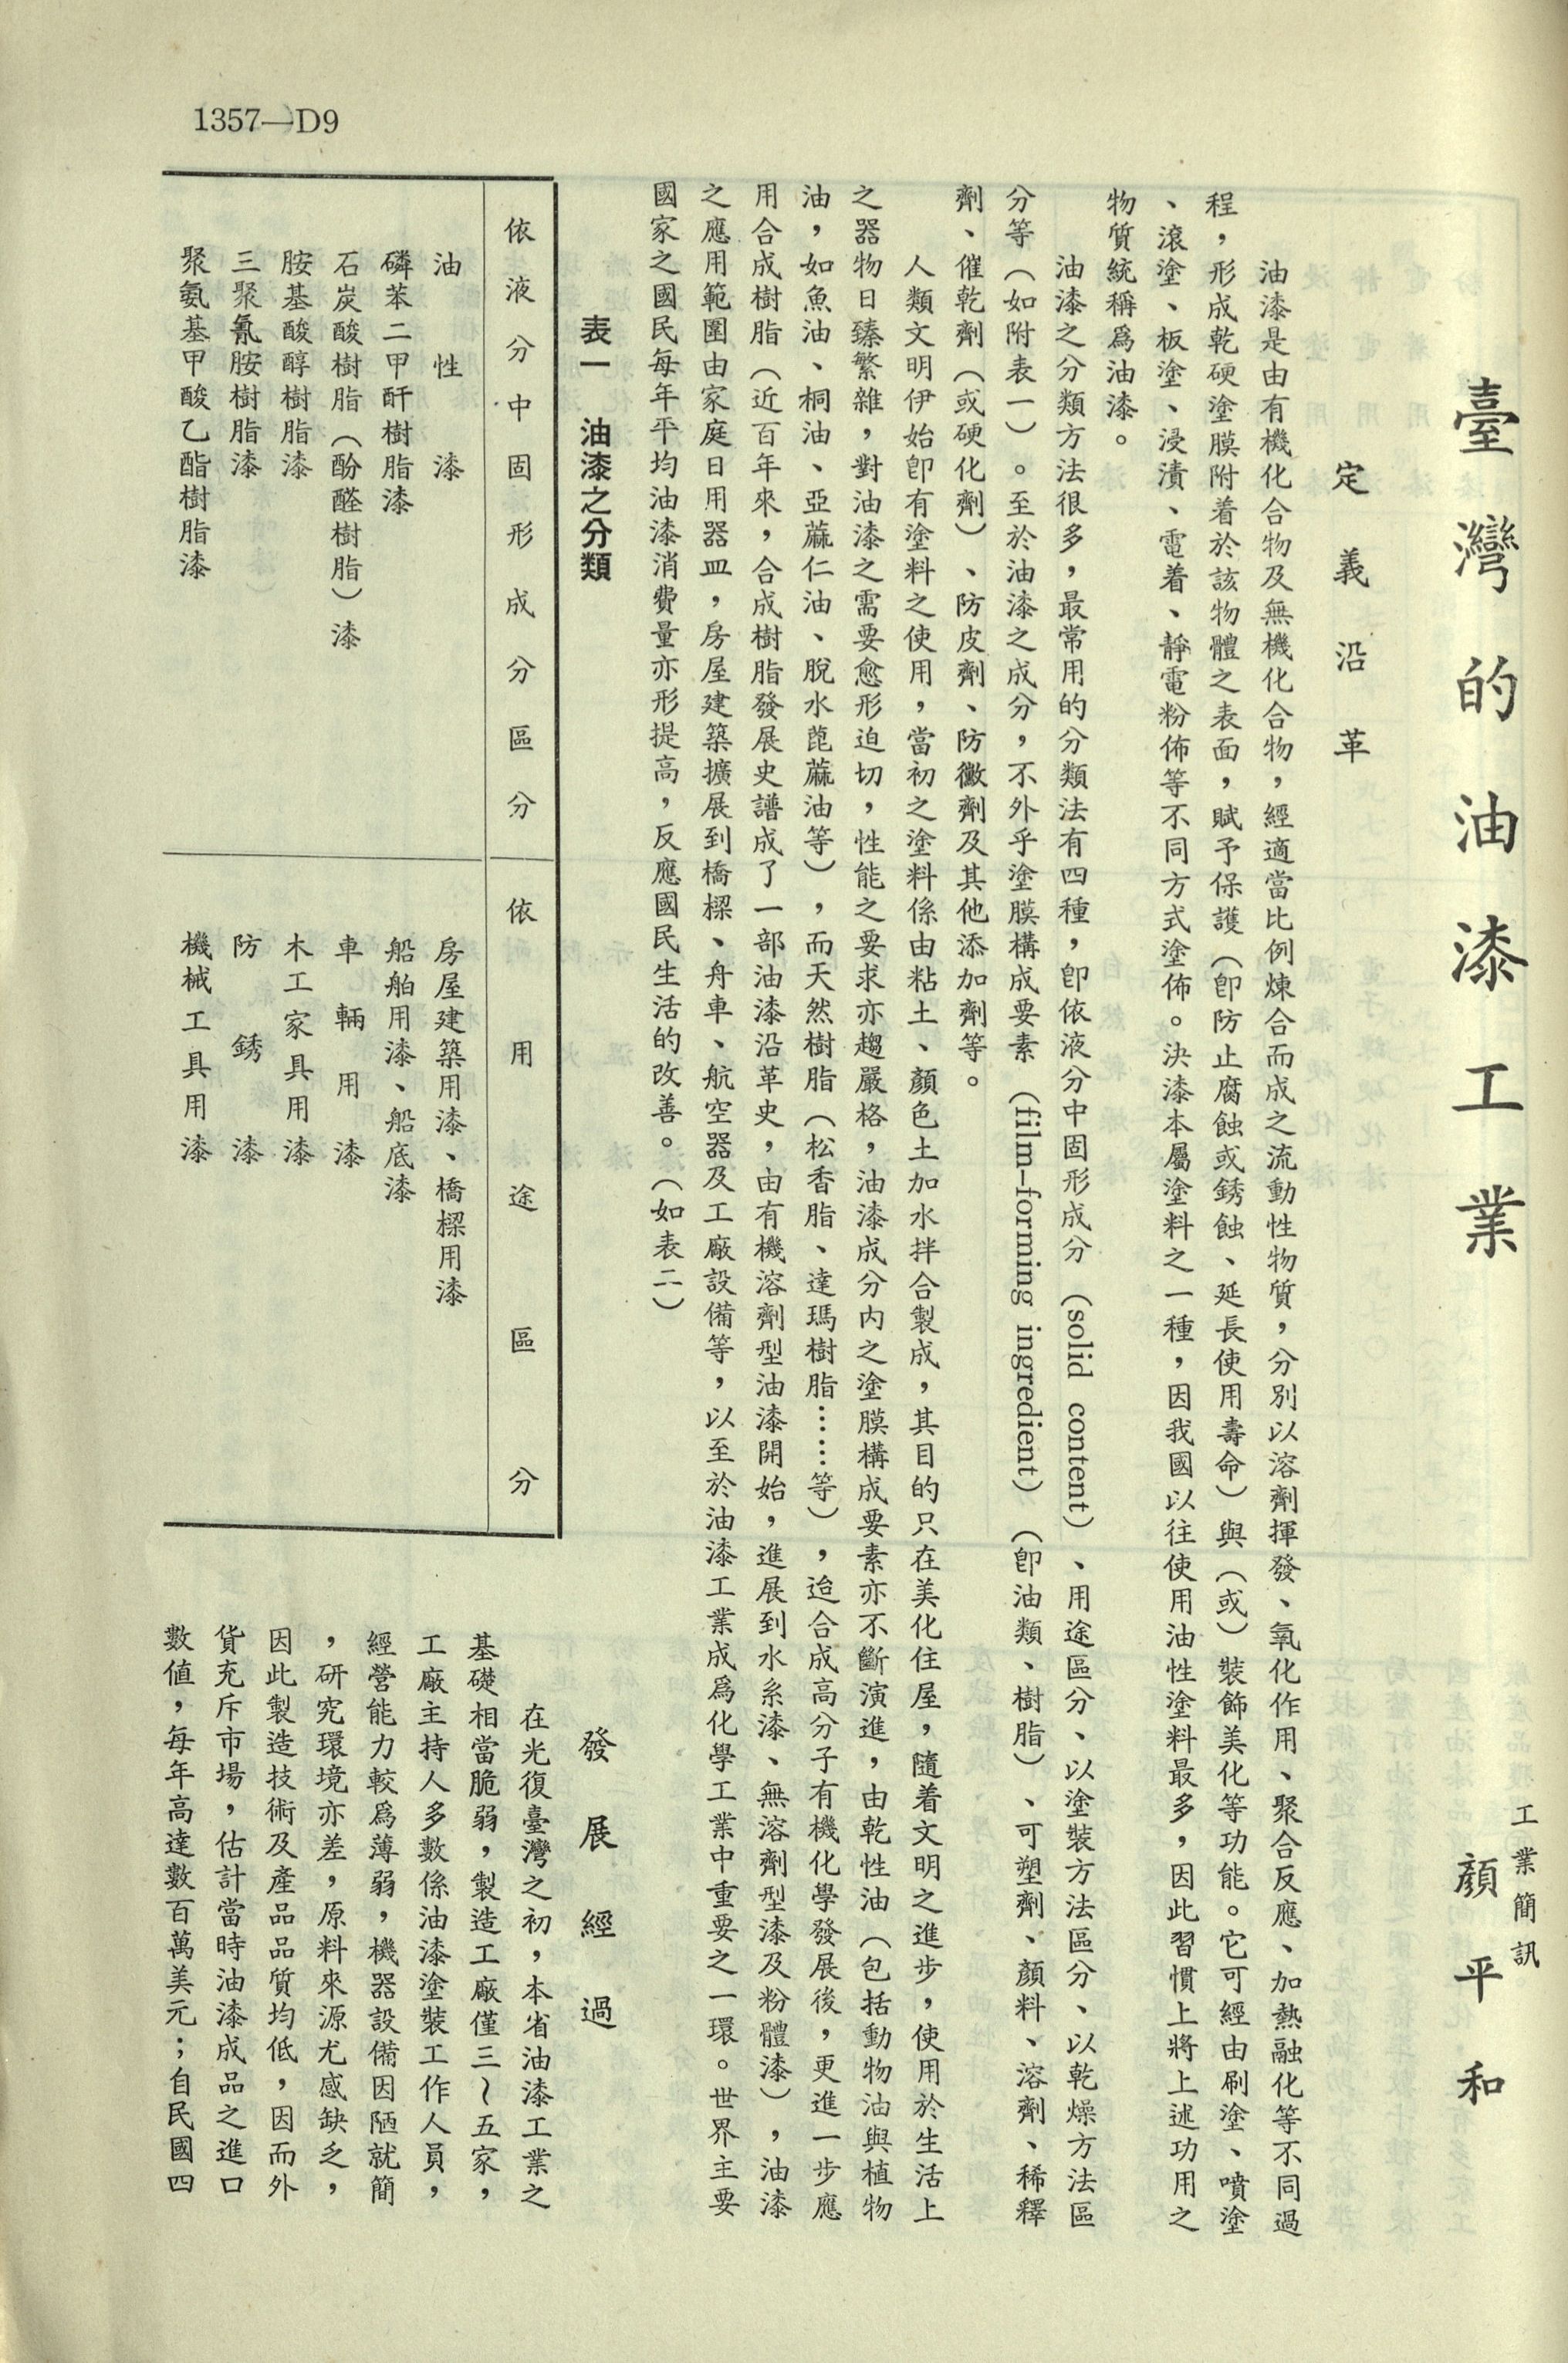 臺灣的油漆工業
工業簡訊
顏平和
定義沿革
油漆是由有機化合物及無機化合物，經適當比例煉合而成之流動性物質，分別以溶劑揮發、氧化作用、聚合反應、加熱融化等不同過
程，形成乾硬塗膜附着於該物體之表面，賦予保護（卽防止腐蝕或銹蝕、延長使用壽命）與（或）裝飾美化等功能。它可經由刷塗、噴塗
、滾塗、板塗、浸漬、電着、靜電粉佈等不同方式塗佈。決漆本屬塗料之一種，因我國以往使用油性塗料最多，因此習慣上將上述功用之
物質統稱爲油漆。
油漆之分類方法很多，最常用的分類法有四種，卽依液分中固形成分（solid content）、用途區分、以塗裝方法區分、以乾燥方法區
分等（如附表一）。至於油漆之成分，不外乎塗膜構成要素（film-forming ingredient）（卽油類、樹脂）、可塑劑、顏料、溶劑、稀釋
劑、催乾劑（或硬化劑）、防皮劑、防黴劑及其他添加劑等。
人類文明伊始卽有塗料之使用，當初之塗料係由粘土、顏色土加水拌合製成，其目的只在美化住屋，隨着文明之進步，使用於生活上
之器物日臻繁雜，對油漆之需要愈形迫切，性能之要求亦趨嚴格，油漆成分内之塗膜構成要素亦不斷演進，由乾性油（包括動物油與植物
油，如魚油、桐油、亞蔴仁油、脫水蓖蔴油等），而天然樹脂（松香脂、達瑪樹脂……等），迨合成高分子有機化學發展後，更進一步應
用合成樹脂（近百年來，合成樹脂發展史譜成了一部油漆沿革史，由有機溶劑型油漆開始，進展到水系漆、無溶劑型漆及粉體漆），油漆
之應用範圍由家庭日用器皿，房屋建築擴展到橋樑、舟車、航空器及工廠設備等，以至於油漆工業成爲化學工業中重要之一環。世界主要
國家之國民每年平均油漆消費量亦形提高，反應國民生活的改善。（如表二）
表一　油漆之分類
依液分中固形成分區分
依用途區分
油性漆
房屋建築用漆、橋樑用漆
磷苯二甲酐樹脂漆
船舶用漆、船底漆
石炭酸樹脂（酚醛樹脂）漆
車輛用漆
胺基酸醇樹脂漆
木工家具用漆
三聚氰胺樹脂漆
防銹漆
聚氨基甲酸乙酯樹脂漆
機械工具用漆
發展經過
在光復臺灣之初，本省油漆工業之
基礎相當脆弱，製造工廠僅三～五家，
工廠主持人多數係油漆塗裝工作人員，
經營能力較爲薄弱，機器設備因陋就簡
，研究環境亦差，原料來源尤感缺乏，
因此製造技術及產品品質均低，因而外
貨充斥市場，估計當時油漆成品之進口
數值，每年高達數百萬美元；自民國四
1357—D9